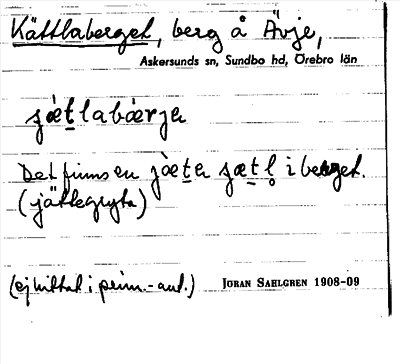 Kättlaberget, berg å Ävje,
Askersunds sn, Sundbo hd, Örebro län
Det finns en i berget.
(jättegryta)
(ej hittat i prim.-aut.)
JÖRAN SAHLGREN 1908-09